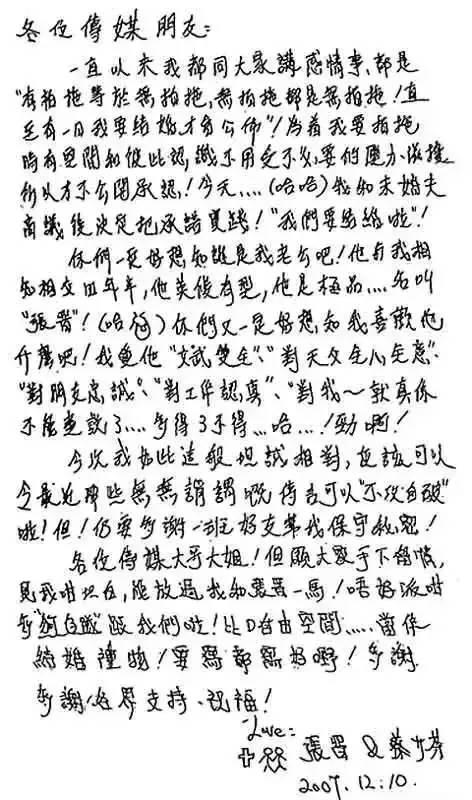 各位傳媒朋友:
一直以來我都同大家講感情事、都是
"有拍拖等於無拍拖,無拍拖都是無拍拖!直
至有一日我要結婚,才會公佈"!為着我要拍拖
時有空間和彼此認識不用受不必要的壓力 滋擾
所以才不公開承認!今天....(哈哈)我和未婚夫
商議後決定把承諾實踐!"我們要結婚啦"!
你們一定好想知誰是我老公吧!他與我相
知相交四年半,他英俊有型,他是極品....名叫
"張晉"!(哈哈)你們又一定好想知我喜歡他
什麼吧!我覺他"文武雙全"、"對天父全心全意"、
"對朋友忠誠"、"對工作認真"、"對我~就真係
不能盡說了....多得3不得...哈...!勁啊!
今次我如此這般坦誠相對,應該可以
令最近那些無無謂謂嘅傳言可以"不攻自破"
啦!但!仍要多謝一班好友幫我保守秘密!
各位傳媒大哥大姐!但願大家手下留情,
見我咁坦白,能放過我和張晉一馬!唔好派咁
多"狗仔隊"跟我們啦!比D自由空間.....當係
結婚禮物!要寫都寫好嘢!多謝
多謝各界支持、祝福!
Love:
張晉 & 蔡少芬
2007.12.10.